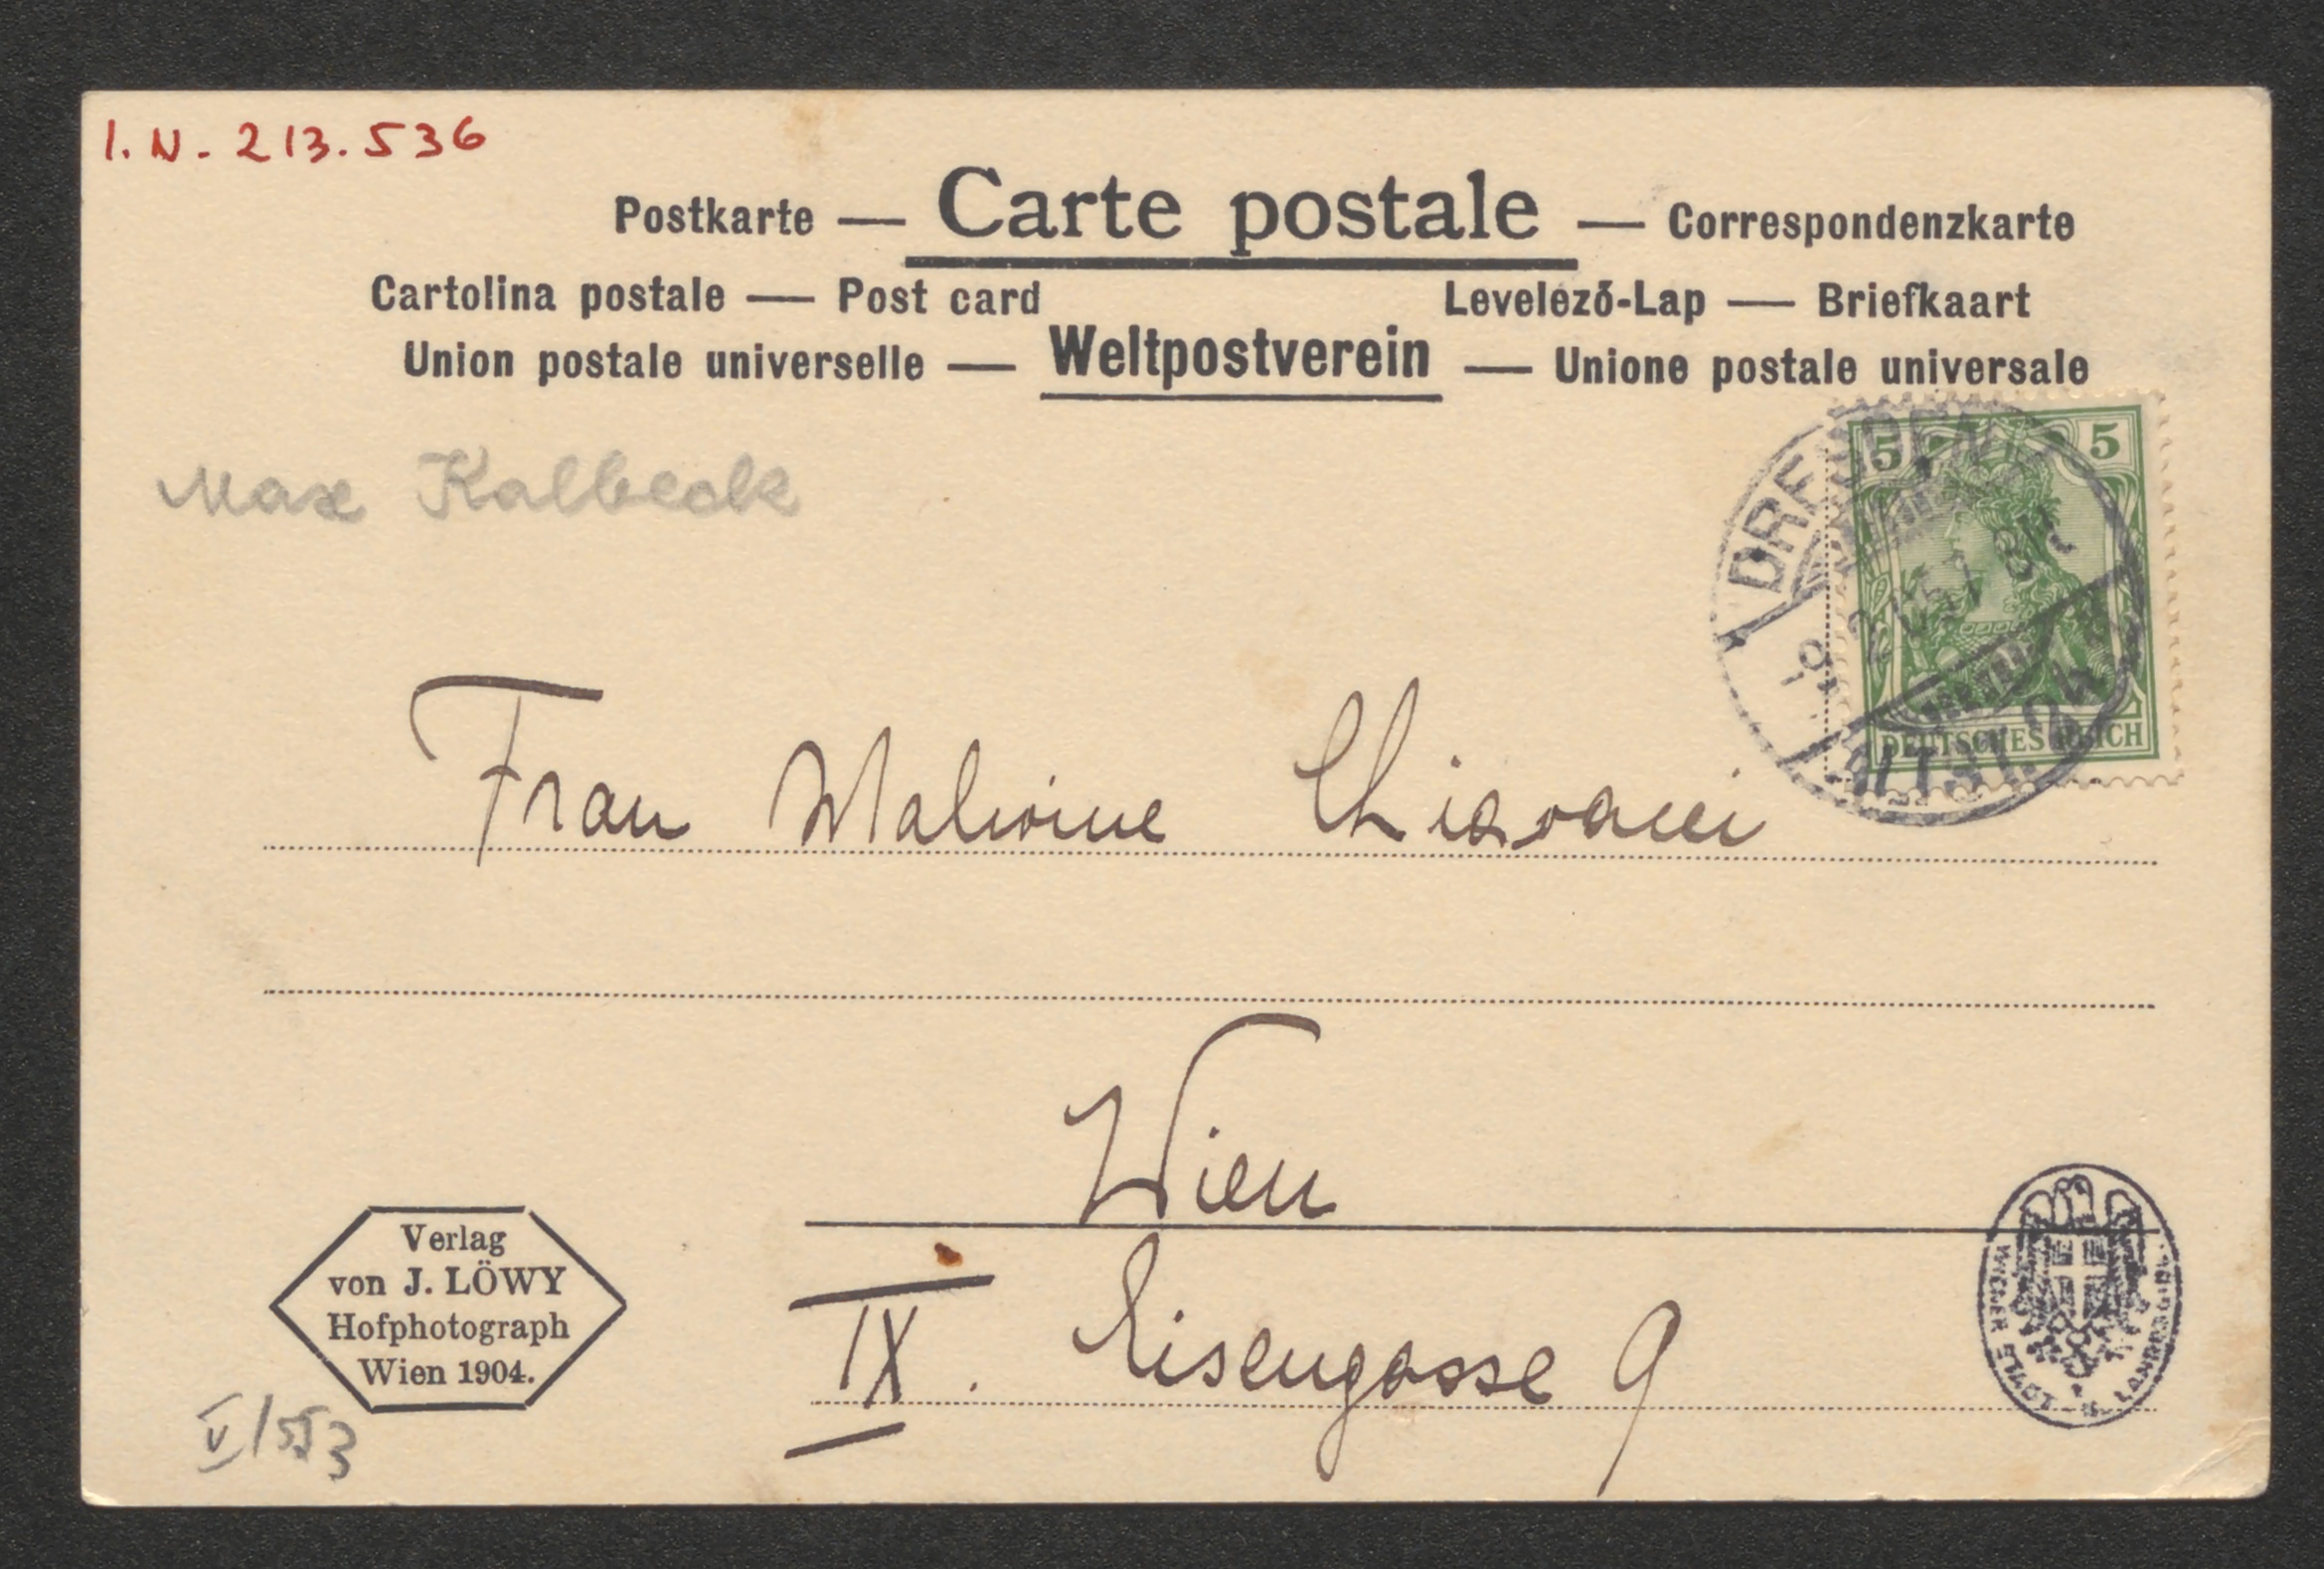 I.N. 213.536
Postkarte — Carte postale — Correspondenzkarte
Cartolina postale — Post card Levelező-Lap — Briefkaart
Union postale universelle — Weltpostverein — Unione postale universale
Max Kalbeck
5 5
DRESDEN
DEUTSCHES REICH
ALTST. 24
Frau Malwine Chiavacci
Wien
IX. Eisengasse 9
Verlag
von J. LÖWY
Hofphotograph
Wien 1904.
V/553
WIENER STADT- U. LANDESBIBL.